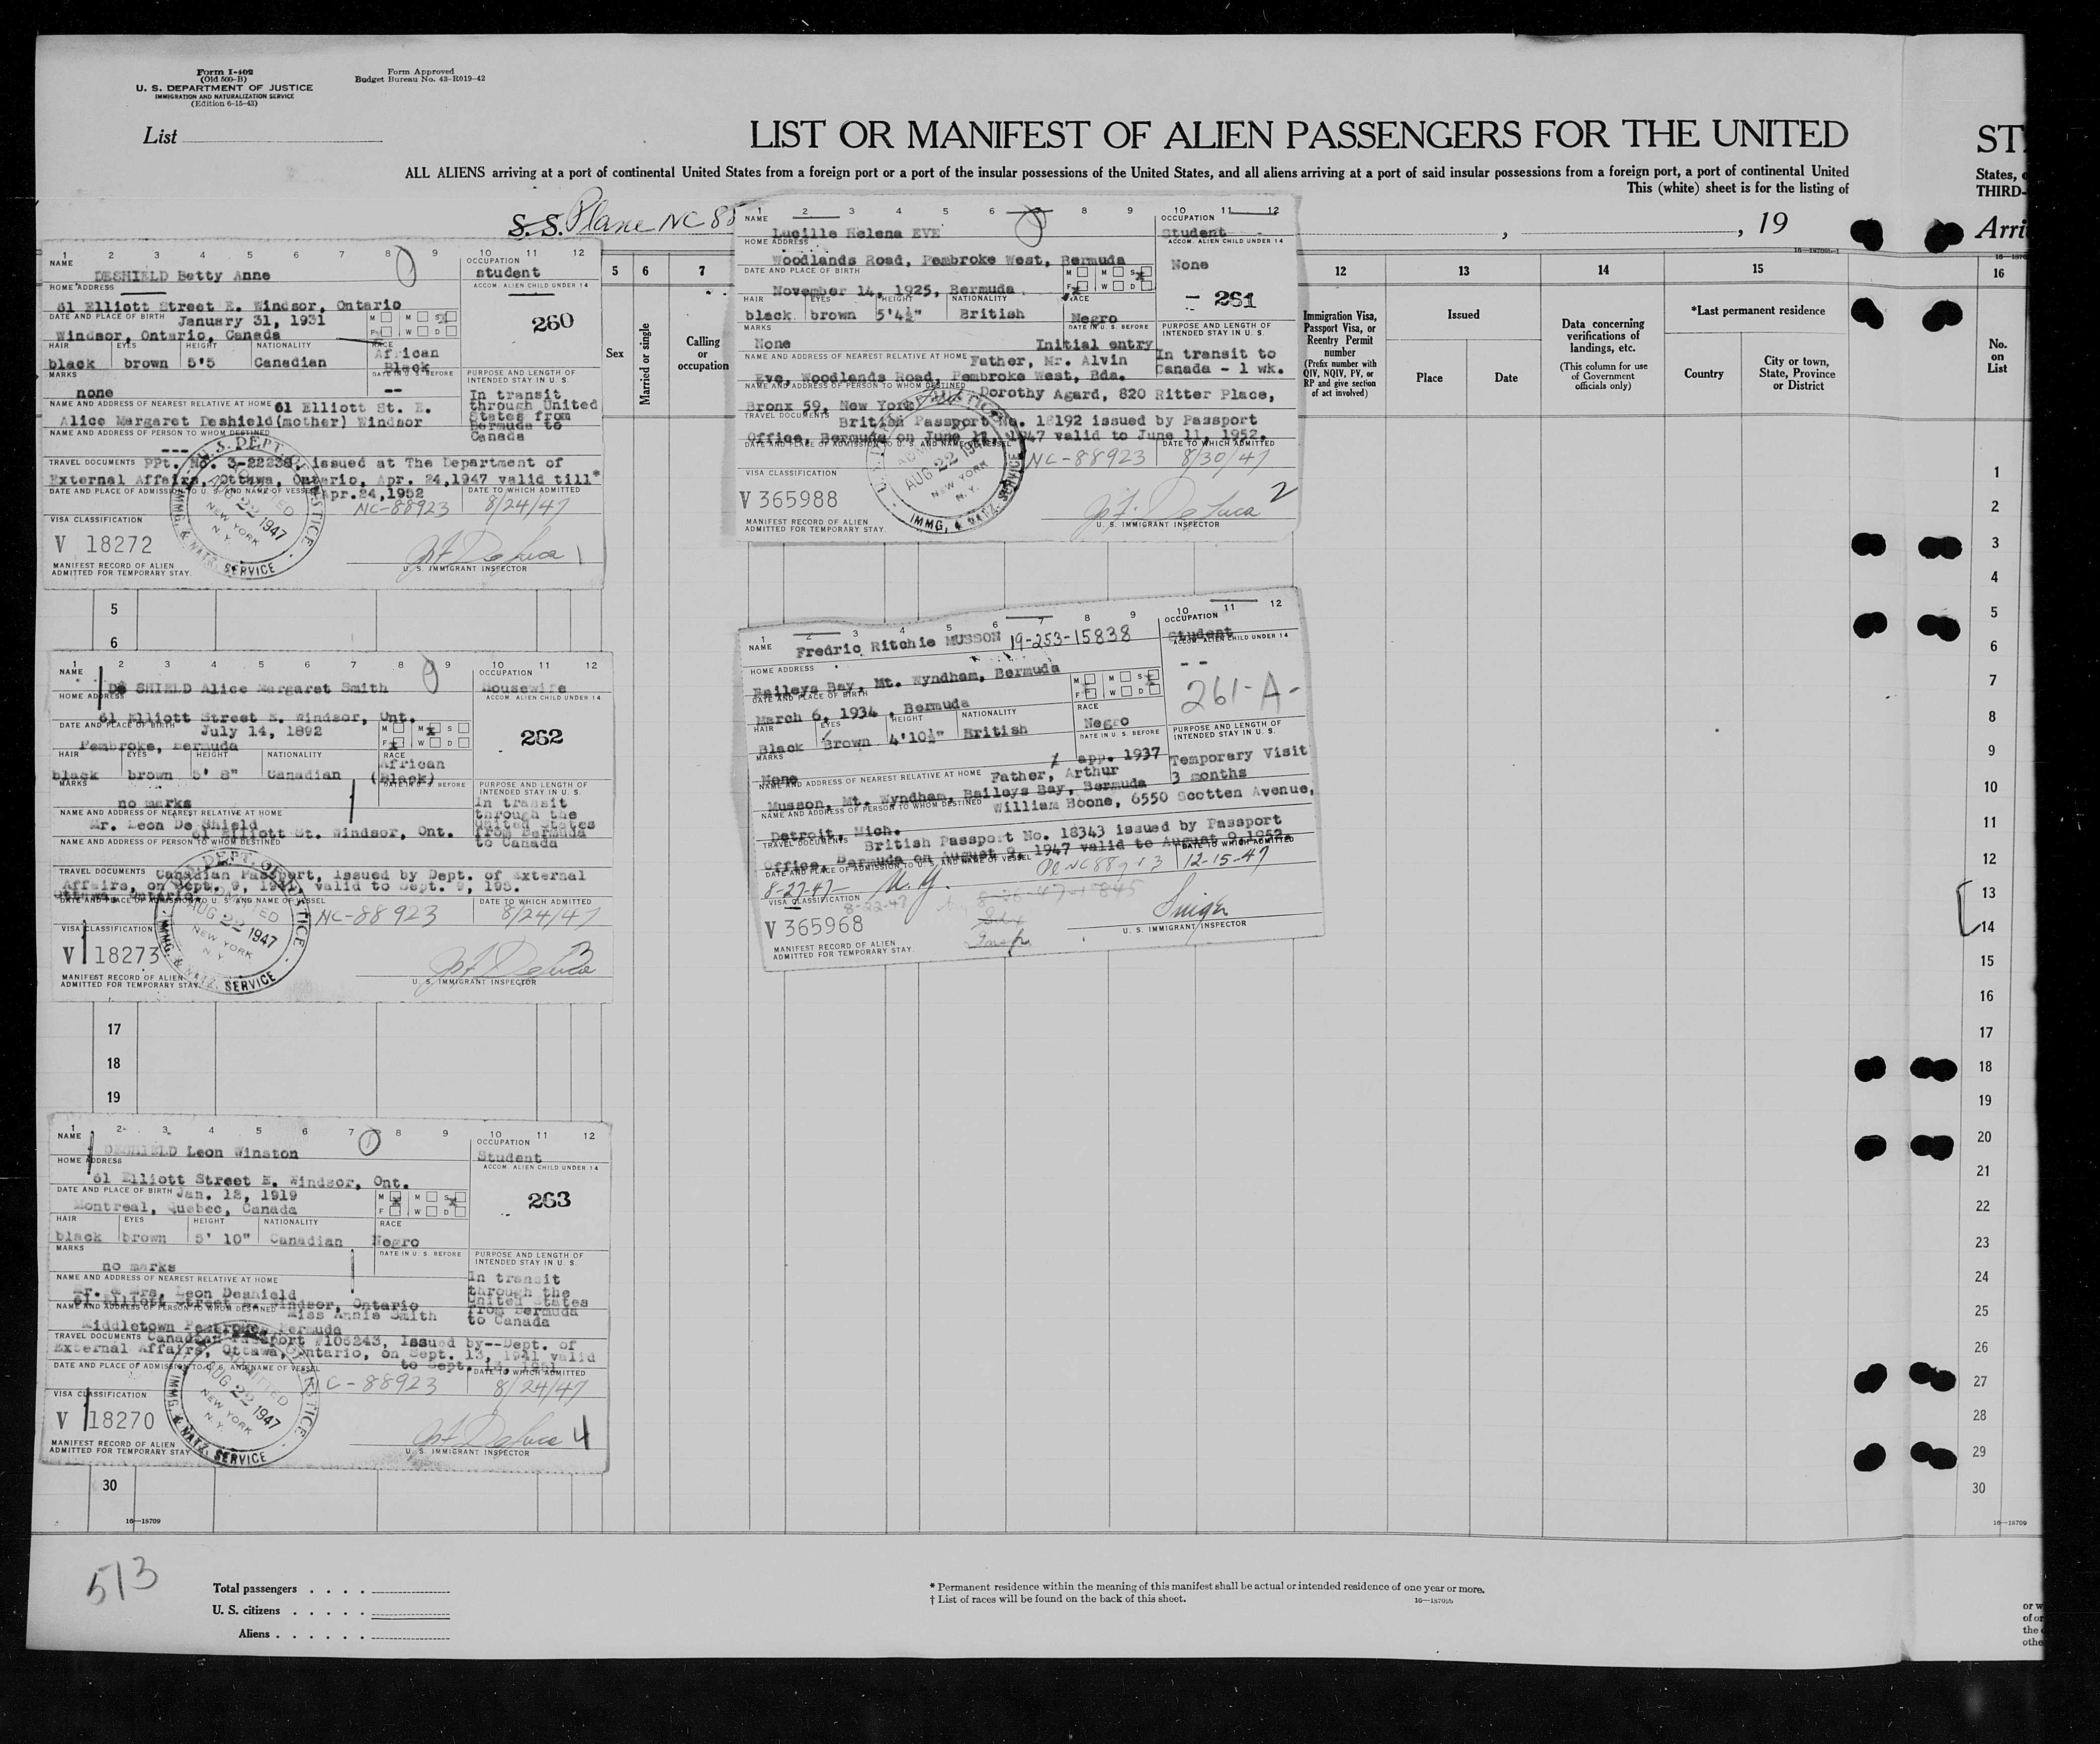 Form I-402
(Old 500-B)
U. S. DEPARTMENT OF JUSTICE
IMMIGRATION AND NATURALIZATION SERVICE
(Edition 6-15-43)
Form Approved
Budget Bureau No. 43-R019-42
List
LIST OR MANIFEST OF ALIEN PASSENGERS FOR THE UNITED
ALL ALIENS arriving at a port of continental United States from a foreign port or a port of the insular possessions of the United States, and all aliens arriving at a port of said insular possessions from a foreign port, a port of continental United
This (white) sheet is for the listing of
S. S. Plane NC 88
, , 19
16—18709b-1
1 2 3 4 5 6 7 8 9 10 11 12
NAME
DESHIELD Betty Anne
OCCUPATION
student
HOME ADDRESS
ACCOM. ALIEN CHILD UNDER 14
61 Elliott Street E. Windsor, Ontario
DATE AND PLACE OF BIRTH
January 31, 1931
M M S
F W D
260
Windsor, Ontario, Canada
HAIR EYES HEIGHT NATIONALITY RACE
black brown 5'5 Canadian African
Black
MARKS
DATE IN U. S. BEFORE
PURPOSE AND LENGTH OF
INTENDED STAY IN U. S.
none
--
In transit
through United
States from
Bermuda to
Canada
NAME AND ADDRESS OF NEAREST RELATIVE AT HOME 61 Elliott St. E.
Alice Margaret Deshield(mother) Windsor
NAME AND ADDRESS OF PERSON TO WHOM DESTINED
---
TRAVEL DOCUMENTS PPt. No. 3-22238, issued at The Department of
External Affairs, Ottawa, Ontario, Apr. 24,1947 valid till*
DATE AND PLACE OF ADMISSION TO U. S. AND NAME OF VESSEL *Apr.24,1952
DATE TO WHICH ADMITTED
NC-88923 8/24/47
U. S. DEPT. OF JUSTICE
ADMITTED
AUG 22 1947
NEW YORK
N. Y.
IMMG. & NATZ. SERVICE
VISA CLASSIFICATION
V 18272
MANIFEST RECORD OF ALIEN
ADMITTED FOR TEMPORARY STAY.
U. S. IMMIGRANT INSPECTOR
1
1 2 3 4 5 6 7 8 9 10 11 12
NAME
Lucille Helena EVE
OCCUPATION
Student
HOME ADDRESS
ACCOM. ALIEN CHILD UNDER 14
Woodlands Road, Pembroke West, Bermuda
None
DATE AND PLACE OF BIRTH
M M S
F W D
November 14, 1925, Bermuda
- 261
HAIR EYES HEIGHT NATIONALITY RACE
black brown 5'4½" British Negro
MARKS
DATE IN U. S. BEFORE
PURPOSE AND LENGTH OF
INTENDED STAY IN U. S.
None
Initial entry
In transit to
Canada - 1 wk.
NAME AND ADDRESS OF NEAREST RELATIVE AT HOME Father, Mr. Alvin
Eve, Woodlands Road, Pembroke West, Bda.
NAME AND ADDRESS OF PERSON TO WHOM DESTINED Dorothy Agard, 820 Ritter Place,
Bronx 59, New York
TRAVEL DOCUMENTS British Passport No. 18192 issued by Passport
Office, Bermuda on June 11, 1947 valid to June 11, 1952.
DATE AND PLACE OF ADMISSION TO U. S. AND NAME OF VESSEL
DATE TO WHICH ADMITTED
NC-88923 8/30/47
AUG 22 1947
NEW YORK
N. Y.
IMMG. & NATZ. SERVICE
VISA CLASSIFICATION
V 365988
2
MANIFEST RECORD OF ALIEN
ADMITTED FOR TEMPORARY STAY.
U. S. IMMIGRANT INSPECTOR
5 6 7 12 13 14 15
Sex
Married or single
Calling
or
occupation
Immigration Visa,
Passport Visa, or
Reentry Permit
number
(Prefix number with
QIV, NQIV, PV, or
RP and give section
of act involved)
Issued
Place
Date
Data concerning
verifications of
landings, etc.
(This column for use
of Government
officials only)
*Last permanent residence
Country
City or town,
State, Province
or District
1 2 3 4 5 6 7 8 9 10 11 12
NAME
De SHIELD Alice Margaret Smith
OCCUPATION
Housewife
HOME ADDRESS
ACCOM. ALIEN CHILD UNDER 14
61 Elliott Street E. Windsor, Ont.
DATE AND PLACE OF BIRTH
July 14, 1892
M M S
F W D
262
Pembroke, Bermuda
HAIR EYES HEIGHT NATIONALITY RACE
black brown 5' 8" Canadian African
(Black)
MARKS
DATE IN U. S. BEFORE
PURPOSE AND LENGTH OF
INTENDED STAY IN U. S.
no marks
In transit
through the
United States
from Bermuda
to Canada
NAME AND ADDRESS OF NEAREST RELATIVE AT HOME
Mr. Leon De Shield
61 Elliott St. Windsor, Ont.
NAME AND ADDRESS OF PERSON TO WHOM DESTINED
TRAVEL DOCUMENTS Canadian Passport, issued by Dept. of External
Affairs, on Sept. 9, 1941, valid to Sept. 9, 195.
Ottawa, Ontario.
DATE AND PLACE OF ADMISSION TO U. S. AND NAME OF VESSEL
DATE TO WHICH ADMITTED
NC-88923 8/24/47
ADMITTED
AUG 22 1947
NEW YORK
N. Y.
IMMG. & NATZ. SERVICE
VISA CLASSIFICATION
V 18273
3
MANIFEST RECORD OF ALIEN
ADMITTED FOR TEMPORARY STAY.
U. S. IMMIGRANT INSPECTOR
1 2 3 4 5 6 7 8 9 10 11 12
NAME
Fredric Ritchie MUSSON 19-253-15838
OCCUPATION
Student
HOME ADDRESS
ACCOM. ALIEN CHILD UNDER 14
Baileys Bay, Mt. Wyndham, Bermuda
--
DATE AND PLACE OF BIRTH
M M S
F W D
261-A-
March 6, 1934, Bermuda
HAIR EYES HEIGHT NATIONALITY RACE
Black Brown 4'10½" British Negro
MARKS
DATE IN U. S. BEFORE
PURPOSE AND LENGTH OF
INTENDED STAY IN U. S.
None
app. 1937
Temporary Visit
3 months
NAME AND ADDRESS OF NEAREST RELATIVE AT HOME Father, Arthur
Musson, Mt. Wyndham, Baileys Bay, Bermuda
NAME AND ADDRESS OF PERSON TO WHOM DESTINED William Boone, 6550 Scotten Avenue,
Detroit, Mich.
TRAVEL DOCUMENTS British Passport No. 18343 issued by Passport
Office, Bermuda on August 9, 1947 valid to August 9, 1952.
DATE AND PLACE OF ADMISSION TO U. S. AND NAME OF VESSEL
DATE TO WHICH ADMITTED
N. Y. 12-15-47
VISA CLASSIFICATION
8-22-47
V 365968
MANIFEST RECORD OF ALIEN
ADMITTED FOR TEMPORARY STAY.
U. S. IMMIGRANT INSPECTOR
1 2 3 4 5 6 7 8 9 10 11 12
NAME
DESHIELD Leon Winston
OCCUPATION
Student
HOME ADDRESS
ACCOM. ALIEN CHILD UNDER 14
61 Elliott Street E. Windsor, Ont.
DATE AND PLACE OF BIRTH Jan. 12, 1919
M M S
F W D
263
Montreal, Quebec, Canada
HAIR EYES HEIGHT NATIONALITY RACE
black brown 5' 10" Canadian Negro
MARKS
DATE IN U. S. BEFORE
PURPOSE AND LENGTH OF
INTENDED STAY IN U. S.
no marks
In transit
through the
United States
from Bermuda
to Canada
NAME AND ADDRESS OF NEAREST RELATIVE AT HOME
Mr. & Mrs. Leon Deshield
61 Elliott Street E. Windsor, Ontario
NAME AND ADDRESS OF PERSON TO WHOM DESTINED Miss Annie Smith
Middletown Pembroke, Bermuda
TRAVEL DOCUMENTS Canadian Passport #105243, Issued by--Dept. of
External Affairs, Ottawa, Ontario, on Sept. 13, 1941 valid
to Sept. 13, 1951
DATE AND PLACE OF ADMISSION TO U. S. AND NAME OF VESSEL
DATE TO WHICH ADMITTED
NC-88923 8/24/47
ADMITTED
AUG 22 1947
NEW YORK
N. Y.
IMMG. & NATZ. SERVICE
VISA CLASSIFICATION
V 18270
4
MANIFEST RECORD OF ALIEN
ADMITTED FOR TEMPORARY STAY
U. S. IMMIGRANT INSPECTOR
5
6
17
18
19
30
16—18709
513
Total passengers
U. S. citizens
Aliens
* Permanent residence within the meaning of this manifest shall be actual or intended residence of one year or more.
† List of races will be found on the back of this sheet.
16—18709b
ST
States, o
THIRD-
Arri
16
No.
on
List
1
2
3
4
5
6
7
8
9
10
11
12
13
14
15
16
17
18
19
20
21
22
23
24
25
26
27
28
29
30
16—18709
or w
of or
the
othe